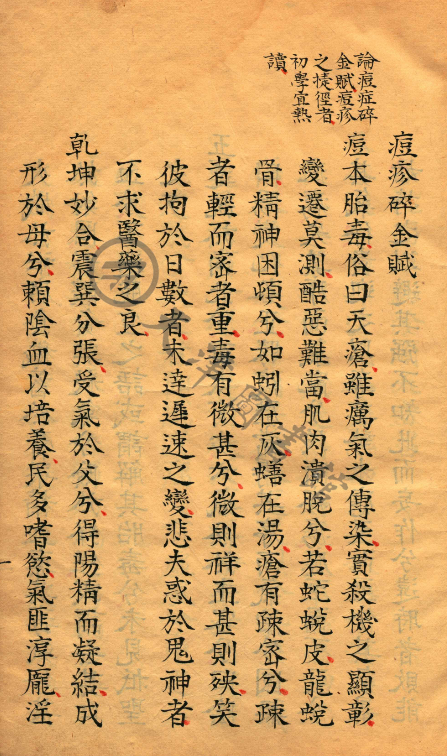 論痘症碎
金賦痘疹
之捷徑者
初學宜熟
讀
痘疹碎金賦
痘本胎毒俗曰天瘡雖癘氣之傳染實殺機之顯彰
變遷莫測酷惡難當肌肉潰脫兮若蛇蛻皮龍蛻
骨精神困頓兮如蚓在灰蟮在湯瘡有疎密兮疎
者輕而密者重毒有微甚兮微則祥而甚則殃笑
彼拘於日數者未達遲速之變悲夫惑於鬼神者
不求醫藥之良
乾坤妙合震巽分張受氣於父兮得陽精而凝結成
形於母兮賴陰血以培養民多嗜慾氣匪淳龐淫